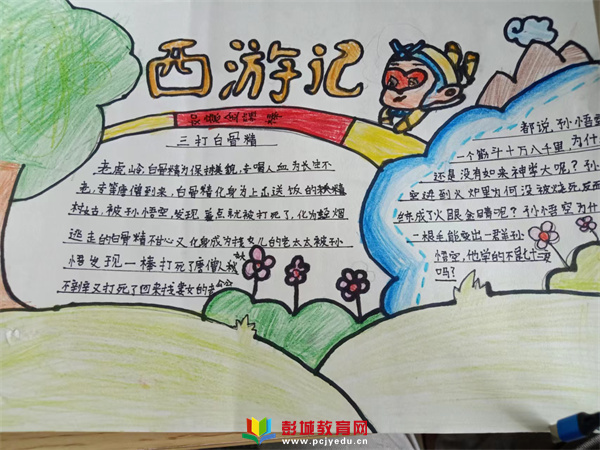 西游记
如意金箍棒
三打白骨精
老虎岭,白骨精为保持美貌,专喝人血为长生不
老,等唐僧到来,白骨精化身为上山送饭的
村姑,被孙悟空发现,差点就被打死了,化为轻烟
逃走的白骨精不甘心又化身成为找女儿的老太太被孙
悟发现一棒打死了唐僧
不到倖又打死了回来找妻女的老
都说,孙悟空
一个筋斗十万八千里,为什
还是没有如来神掌大呢?孙
空进到火炉里为何没被烧死,反而
练成了火眼金睛呢?孙悟空为什
一根毛能变出一群孙
悟空,他学的不是
吗?
彭城教育网
www.pcjyedu.cn